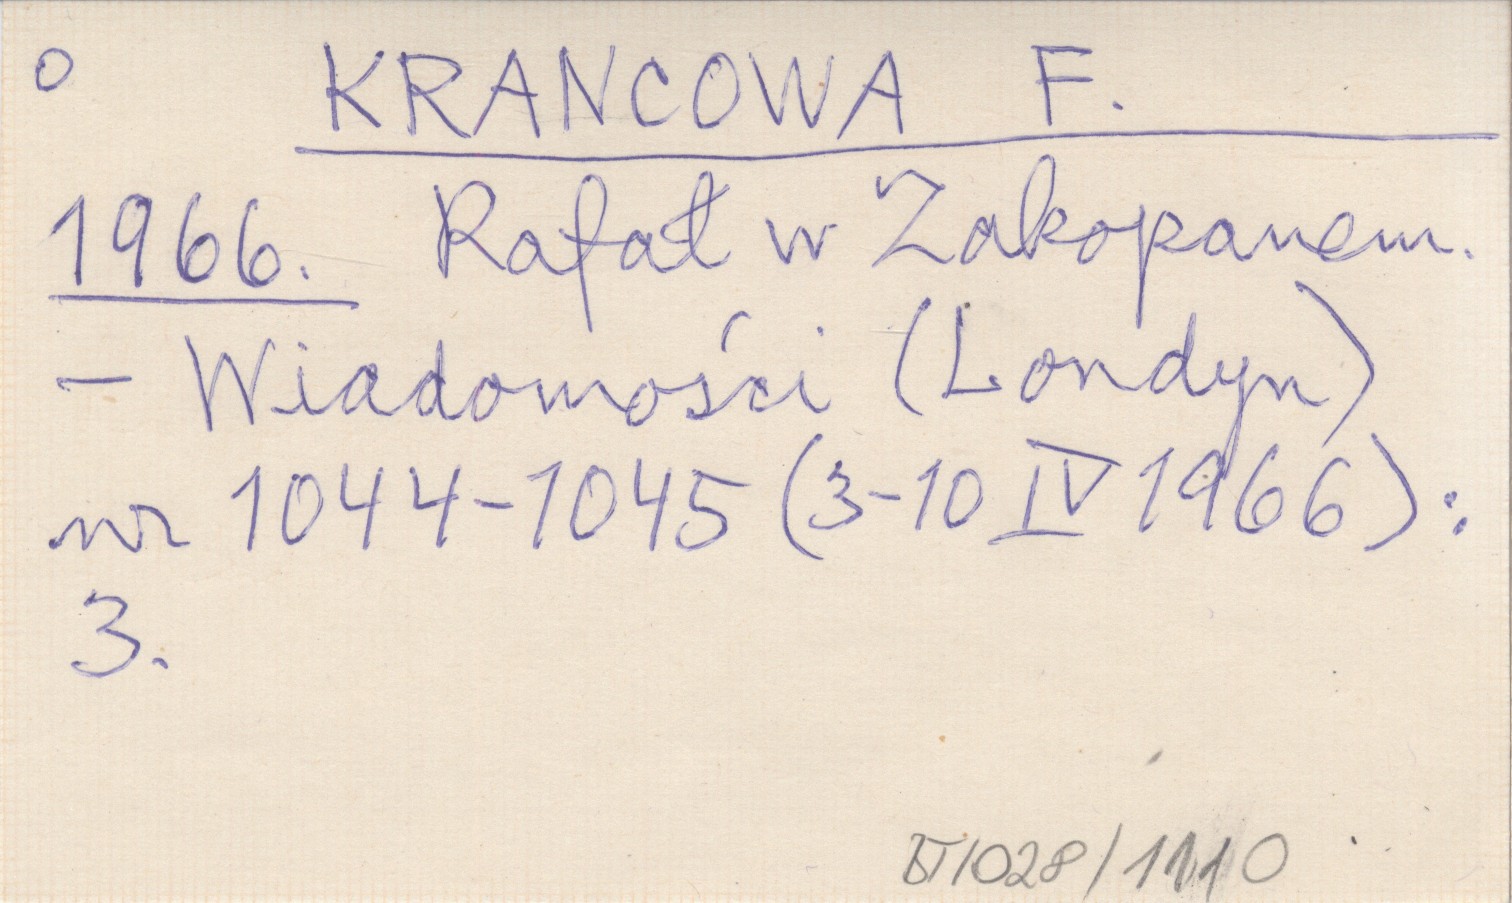 o KRANCOWA F.
1966. Rafał w Zakopanem.
– Wiadomości (Londyn)
nr 1044-1045 (3-10 IV 1966):
3.
BT/028/1110